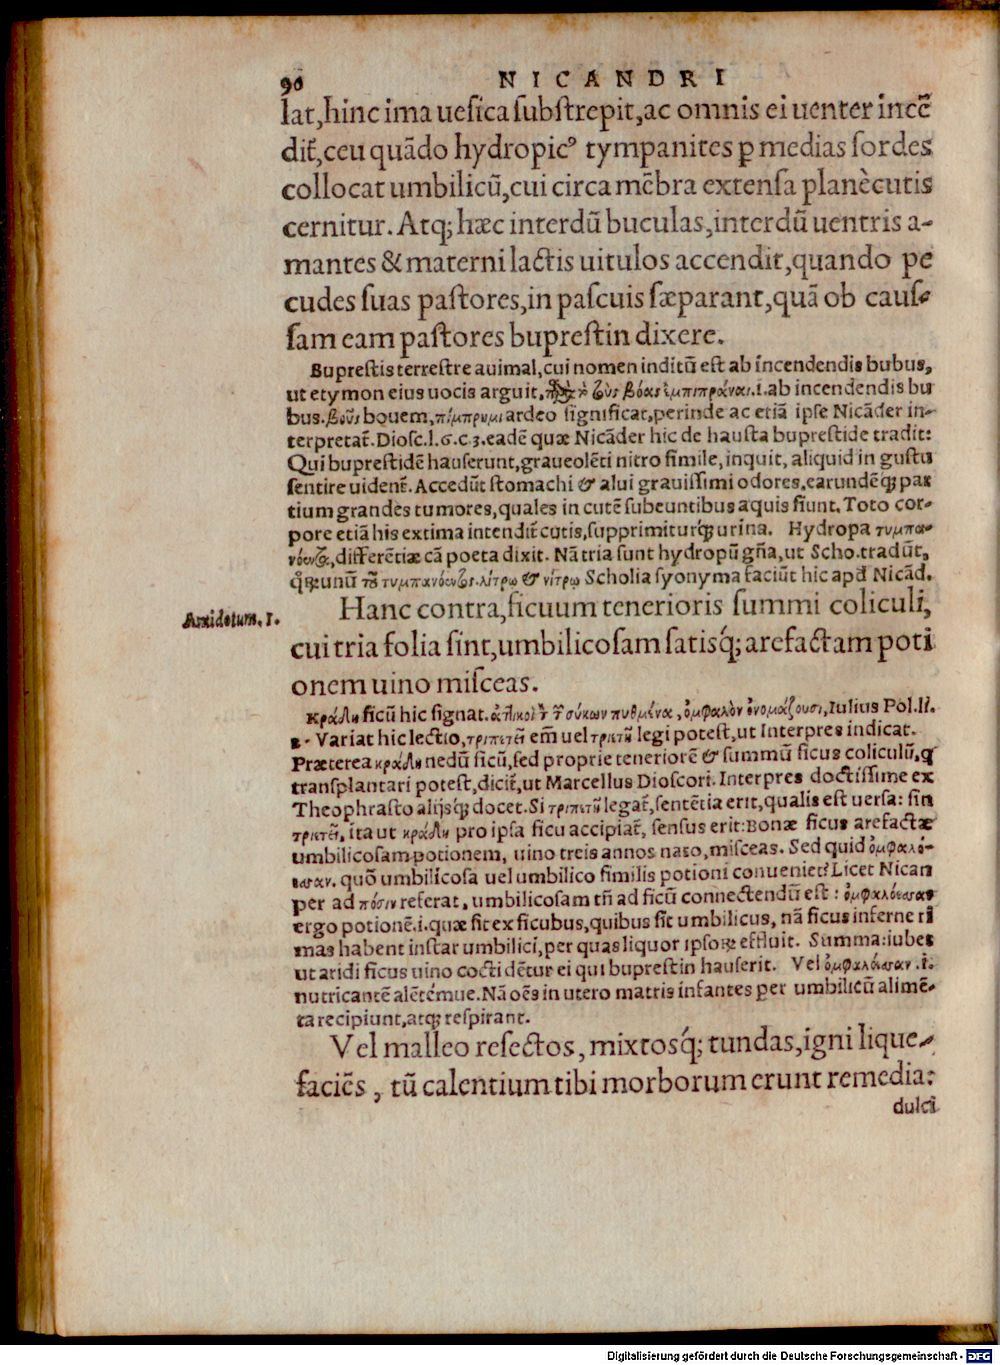 90 NICANDRI
lat, hinc ima uesica substrepit, ac omnis ei uenter incẽ
dit̃, ceu quãdo hydropicꝰ tympanites p medias sordes
collocat umbilicũ, cui circa mẽbra extensa planè cutis
cernitur. Atq; hæc interdũ buculas, interdũ uentris a-
mantes & materni lactis uitulos accendit, quando pe
cudes suas pastores, in pascuis sæparant, quã ob caus-
sam eam pastores buprestin dixere.
Buprestis terrestre auimal, cui nomen inditũ est ab incendendis bubus,
ut etymon eius uocis arguit, τὸ τοὺς βόας ἐμπιπράναι. i. ab incendendis bu
bus. βοῦς bouem, πίμπρημι ardeo significat, perinde ac etiã ipse Nicãder in-
terpretat̃. Diosc. l. 6. c. 3. eadẽ quæ Nicãder hic de hausta buprestide tradit:
Qui buprestidẽ hauserunt, graueolẽti nitro simile, inquit, aliquid in gustu
sentire uident̃. Accedũt stomachi & alui grauissimi odores, earundẽq; par
tium grandes tumores, quales in cutẽ subeuntibus aquis fiunt. Toto cor-
pore etiã his extima intendit̃ cutis, supprimiturq; urina. Hydropa τυμπα-
νόεντος, differẽtiæ cã poeta dixit. Nã tria sunt hydropũ gña, ut Scho. tradũt,
unũ τοῦ τυμπανόεντος. λίτρῳ & νίτρῳ Scholia syonyma faciũt hic apd Nicãd.
Antidotum. 1.
Hanc contra, ficuum tenerioris summi coliculi,
cui tria folia sint, umbilicosam satisq́; arefactam poti
onem uino misceas.
Κράδη ficũ hic signat. ἀττικοὶ τὸν τῶν σύκων πυθμένα, ὀμφαλὸν ὀνομάζουσι, Iulius Pol. li.
2. Variat hic lectio, τριπετῆ em̃ uel τριετῆ legi potest, ut Interpres indicat.
Præterea κράδη nedũ ficũ, sed proprie teneriorẽ & summũ ficus coliculũ, q
transplantari potest, dicit̃, ut Marcellus Dioscori. Interpres doctissime ex
Theophrasto alijsq; docet. Si τριπετῆ legat̃, sentẽtia erit, qualis est uersa: sin
τριετῆ, ita ut κράδη pro ipsa ficu accipiat̃, sensus erit: Bonæ ficus arefactæ
umbilicosam potionem, uino treis annos nato, misceas. Sed quid ὀμφαλό-
εσσαν. quõ umbilicosa uel umbilico similis potioni conueniet? Licet Nican
per ad πόσιν referat, umbilicosam tñ ad ficũ connectendũ est: ὀμφαλόεσσαν
ergo potionẽ. i. quæ fit ex ficubus, quibus sit umbilicus, nã ficus inferne ri
mas habent instar umbilici, per quas liquor ipsoꝝ effluit. Summa: iubet
ut aridi ficus uino cocti dẽtur ei qui buprestin hauserit. Vel ὀμφαλόεσσαν. i.
nutricantẽ alẽtẽmue. Nã oẽs in utero matris infantes per umbilicũ alimẽ-
ta recipiunt, atq; respirant.
Vel malleo resectos, mixtosq́; tundas, igni lique-
faciẽs, tũ calentium tibi morborum erunt remedia:
dulci
Digitalisierung gefördert durch die Deutsche Forschungsgemeinschaft - DFG